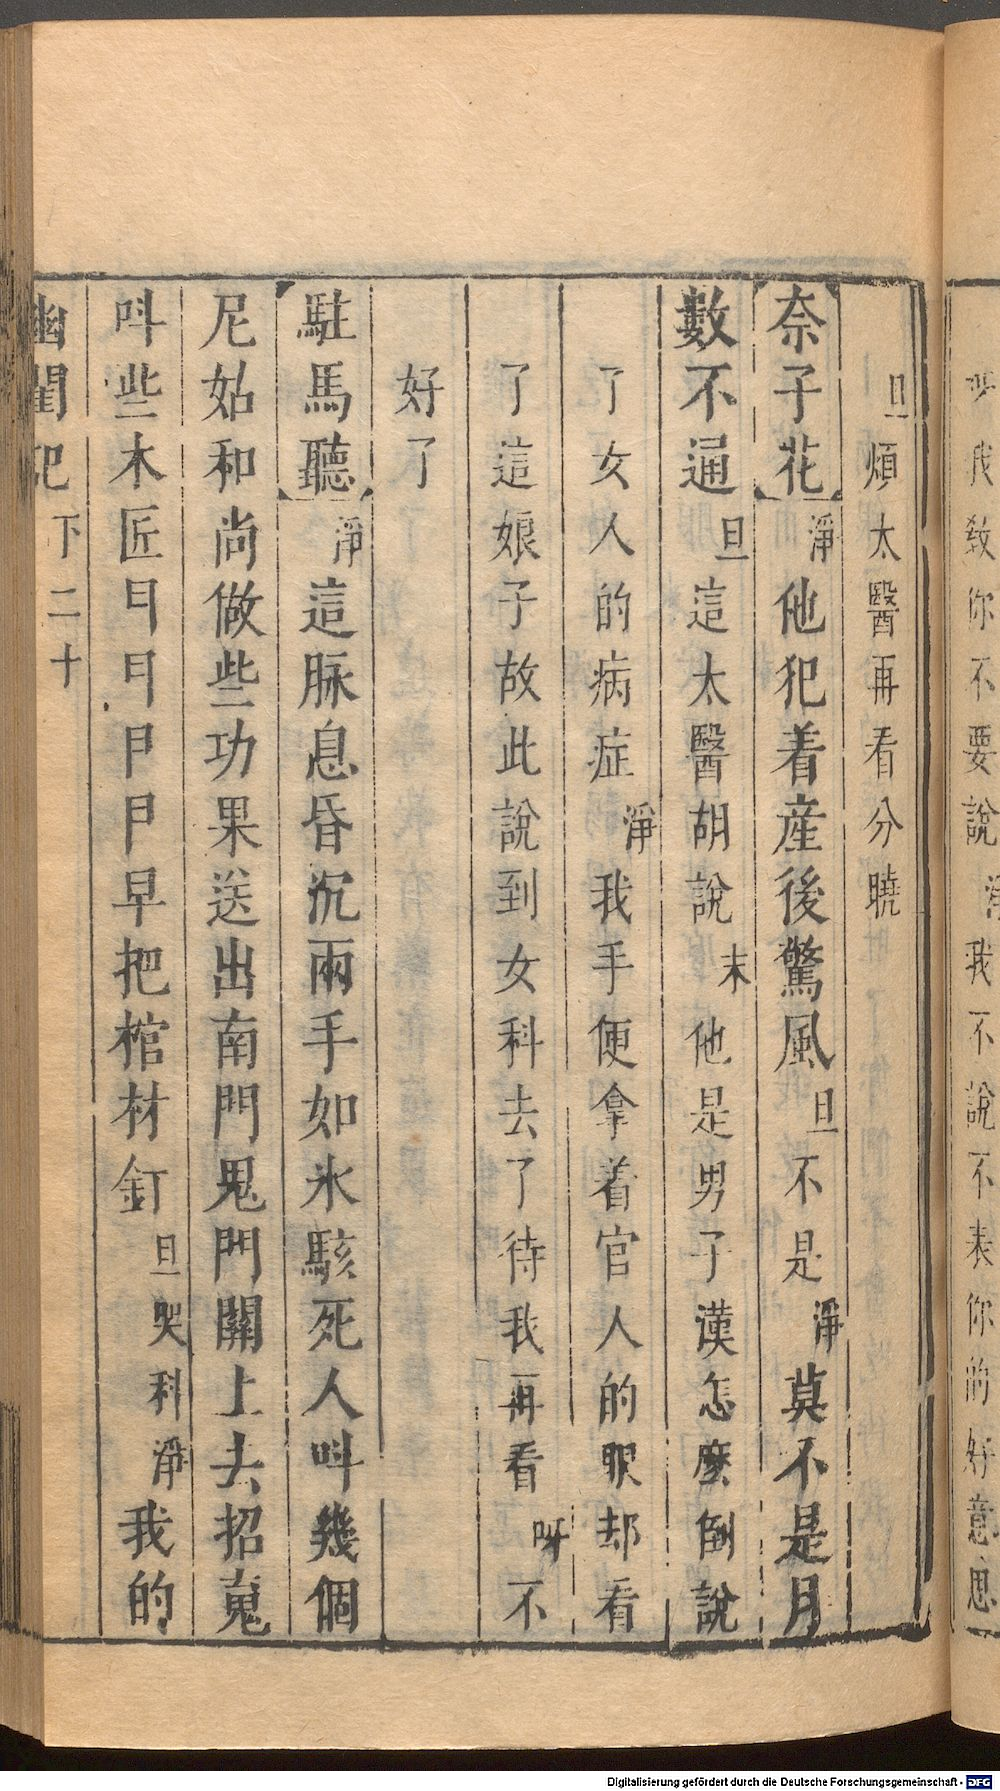 我教你不要說淨我不說不表你的好意思
旦煩太醫再看分曉
奈子花淨他犯着產後驚風旦不是淨莫不是月
數不通旦這太醫胡說末他是男子漢怎麼倒說
了女人的病症淨我手便拿着官人的眼却看
了這娘子故此說到女科去了待我再看呀不
好了
駐馬聽淨這脉息昏沉兩手如氷駭死人叫幾個
尼姑和尚做些功果送出南門鬼門關上去招䰟
呌些木匠曰曰尸尸早把棺材釘旦哭科淨我的
幽閨記 下二十
Digitalisierung gefördert durch die Deutsche Forschungsgemeinschaft - DFG